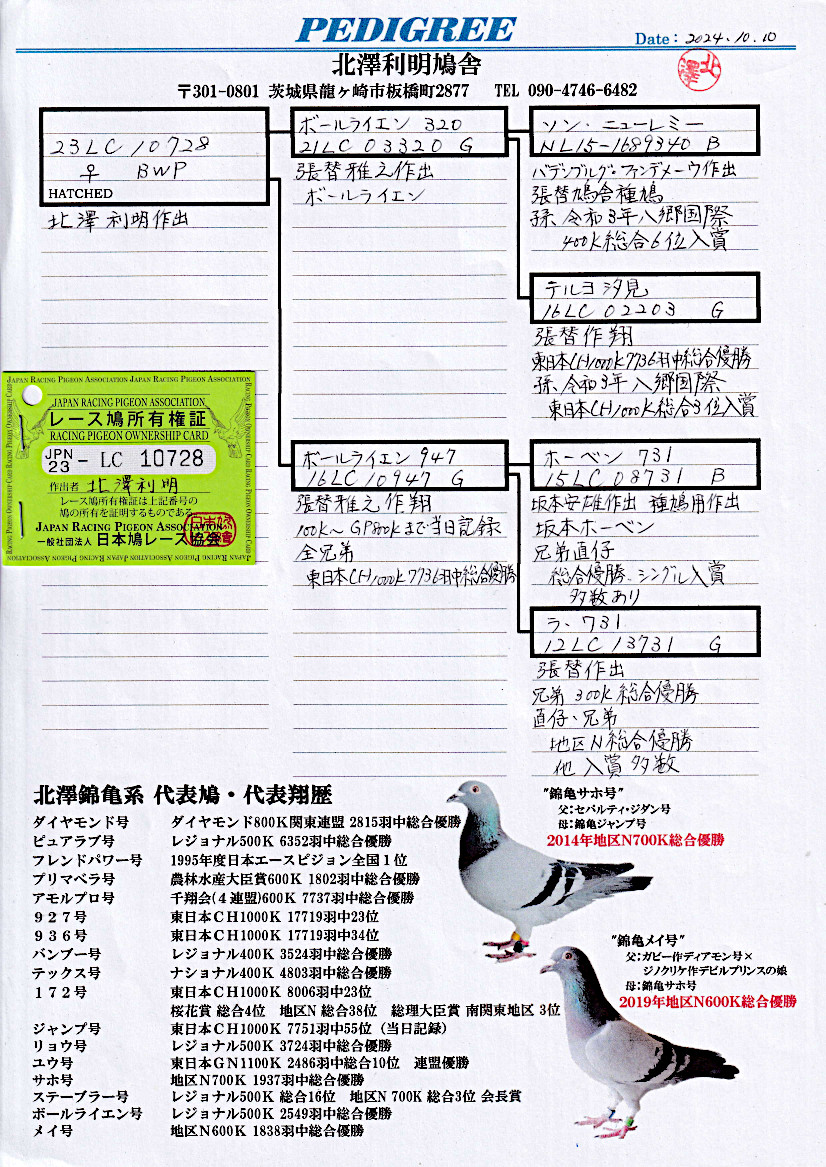 PEDIGREE
Date: 2024.10.10
北澤利明鳩舎
北澤
〒301-0801 茨城県龍ヶ崎市板橋町2877 TEL 090-4746-6482
23LC10728
♀ BWP
HATCHED
北澤利明作出
ボールライエン 320
21LC 03320 G
張替雅之作出
ボールライエン
ソン・ニューレミー
NL15-1689340 B
バデンブルグ・ファンデメーウ作出
張替鳩舎種鳩
孫 令和3年八郷国際
400K総合6位入賞
テルヨ汐見
16LC 02203 G
張替作翔
東日本CH1000K7736羽中総合優勝
孫 令和3年八郷国際
東日本CH1000K総合9位入賞
JAPAN RACING PIGEON ASSOCIATION JAPAN RACING PIGEON ASSOCIATION
JAPAN RACING PIGEON ASSOCIATION
レース鳩所有権証
RACING PIGEON OWNERSHIP CARD
JPN
23 - LC 10728
作出者 北澤利明
レース鳩所有権証は上記番号の
鳩の所有を証明するものである
JAPAN RACING PIGEON ASSOCIATION
一般社団法人 日本鳩レース協会
ボールライエン 947
16LC 10947 G
張替雅之作翔
100K～GP800Kまで当日記録
全兄弟
東日本CH1000K7736羽中総合優勝
ホーベン 731
15LC 08731 B
坂本安雄作出 種鳩用作出
坂本ホーベン
兄弟直仔
総合優勝、シングル入賞
多数あり
ラ・731
12LC13731 G
張替作出
兄弟 300K総合優勝
直仔、兄弟
地区N総合優勝
他 入賞多数
北澤錦亀系 代表鳩・代表翔歴
ダイヤモンド号 ダイヤモンド800K関東連盟 2815羽中総合優勝
ピュアラブ号 レジョナル500K 6352羽中総合優勝
フレンドパワー号 1995年度日本エースピジョン全国1位
プリマベラ号 農林水産大臣賞600K 1802羽中総合優勝
アモルプロ号 千翔会(4連盟)600K 7737羽中総合優勝
927号 東日本CH1000K 17719羽中23位
936号 東日本CH1000K 17719羽中34位
バンブー号 レジョナル400K 3524羽中総合優勝
テックス号 ナショナル400K 4803羽中総合優勝
172号 東日本CH1000K 8006羽中23位
桜花賞 総合4位 地区N 総合38位 総理大臣賞 南関東地区 3位
ジャンプ号 東日本CH1000K 7751羽中55位（当日記録）
リョウ号 レジョナル500K 3724羽中総合優勝
ユウ号 東日本GN1100K 2486羽中総合10位 連盟優勝
サホ号 地区N700K 1937羽中総合優勝
ステーブラー号 レジョナル500K 総合16位 地区N 700K 総合3位 会長賞
ボールライエン号 レジョナル500K 2549羽中総合優勝
メイ号 地区N600K 1838羽中総合優勝
"錦亀サホ号"
父：セバルティ・ジダン号
母：錦亀ジャンプ号
2014年地区N700K総合優勝
"錦亀メイ号"
父：ガビー作ディアモン号×
ジノクリケ作デビルプリンスの娘
母：錦亀サホ号
2019年地区N600K総合優勝